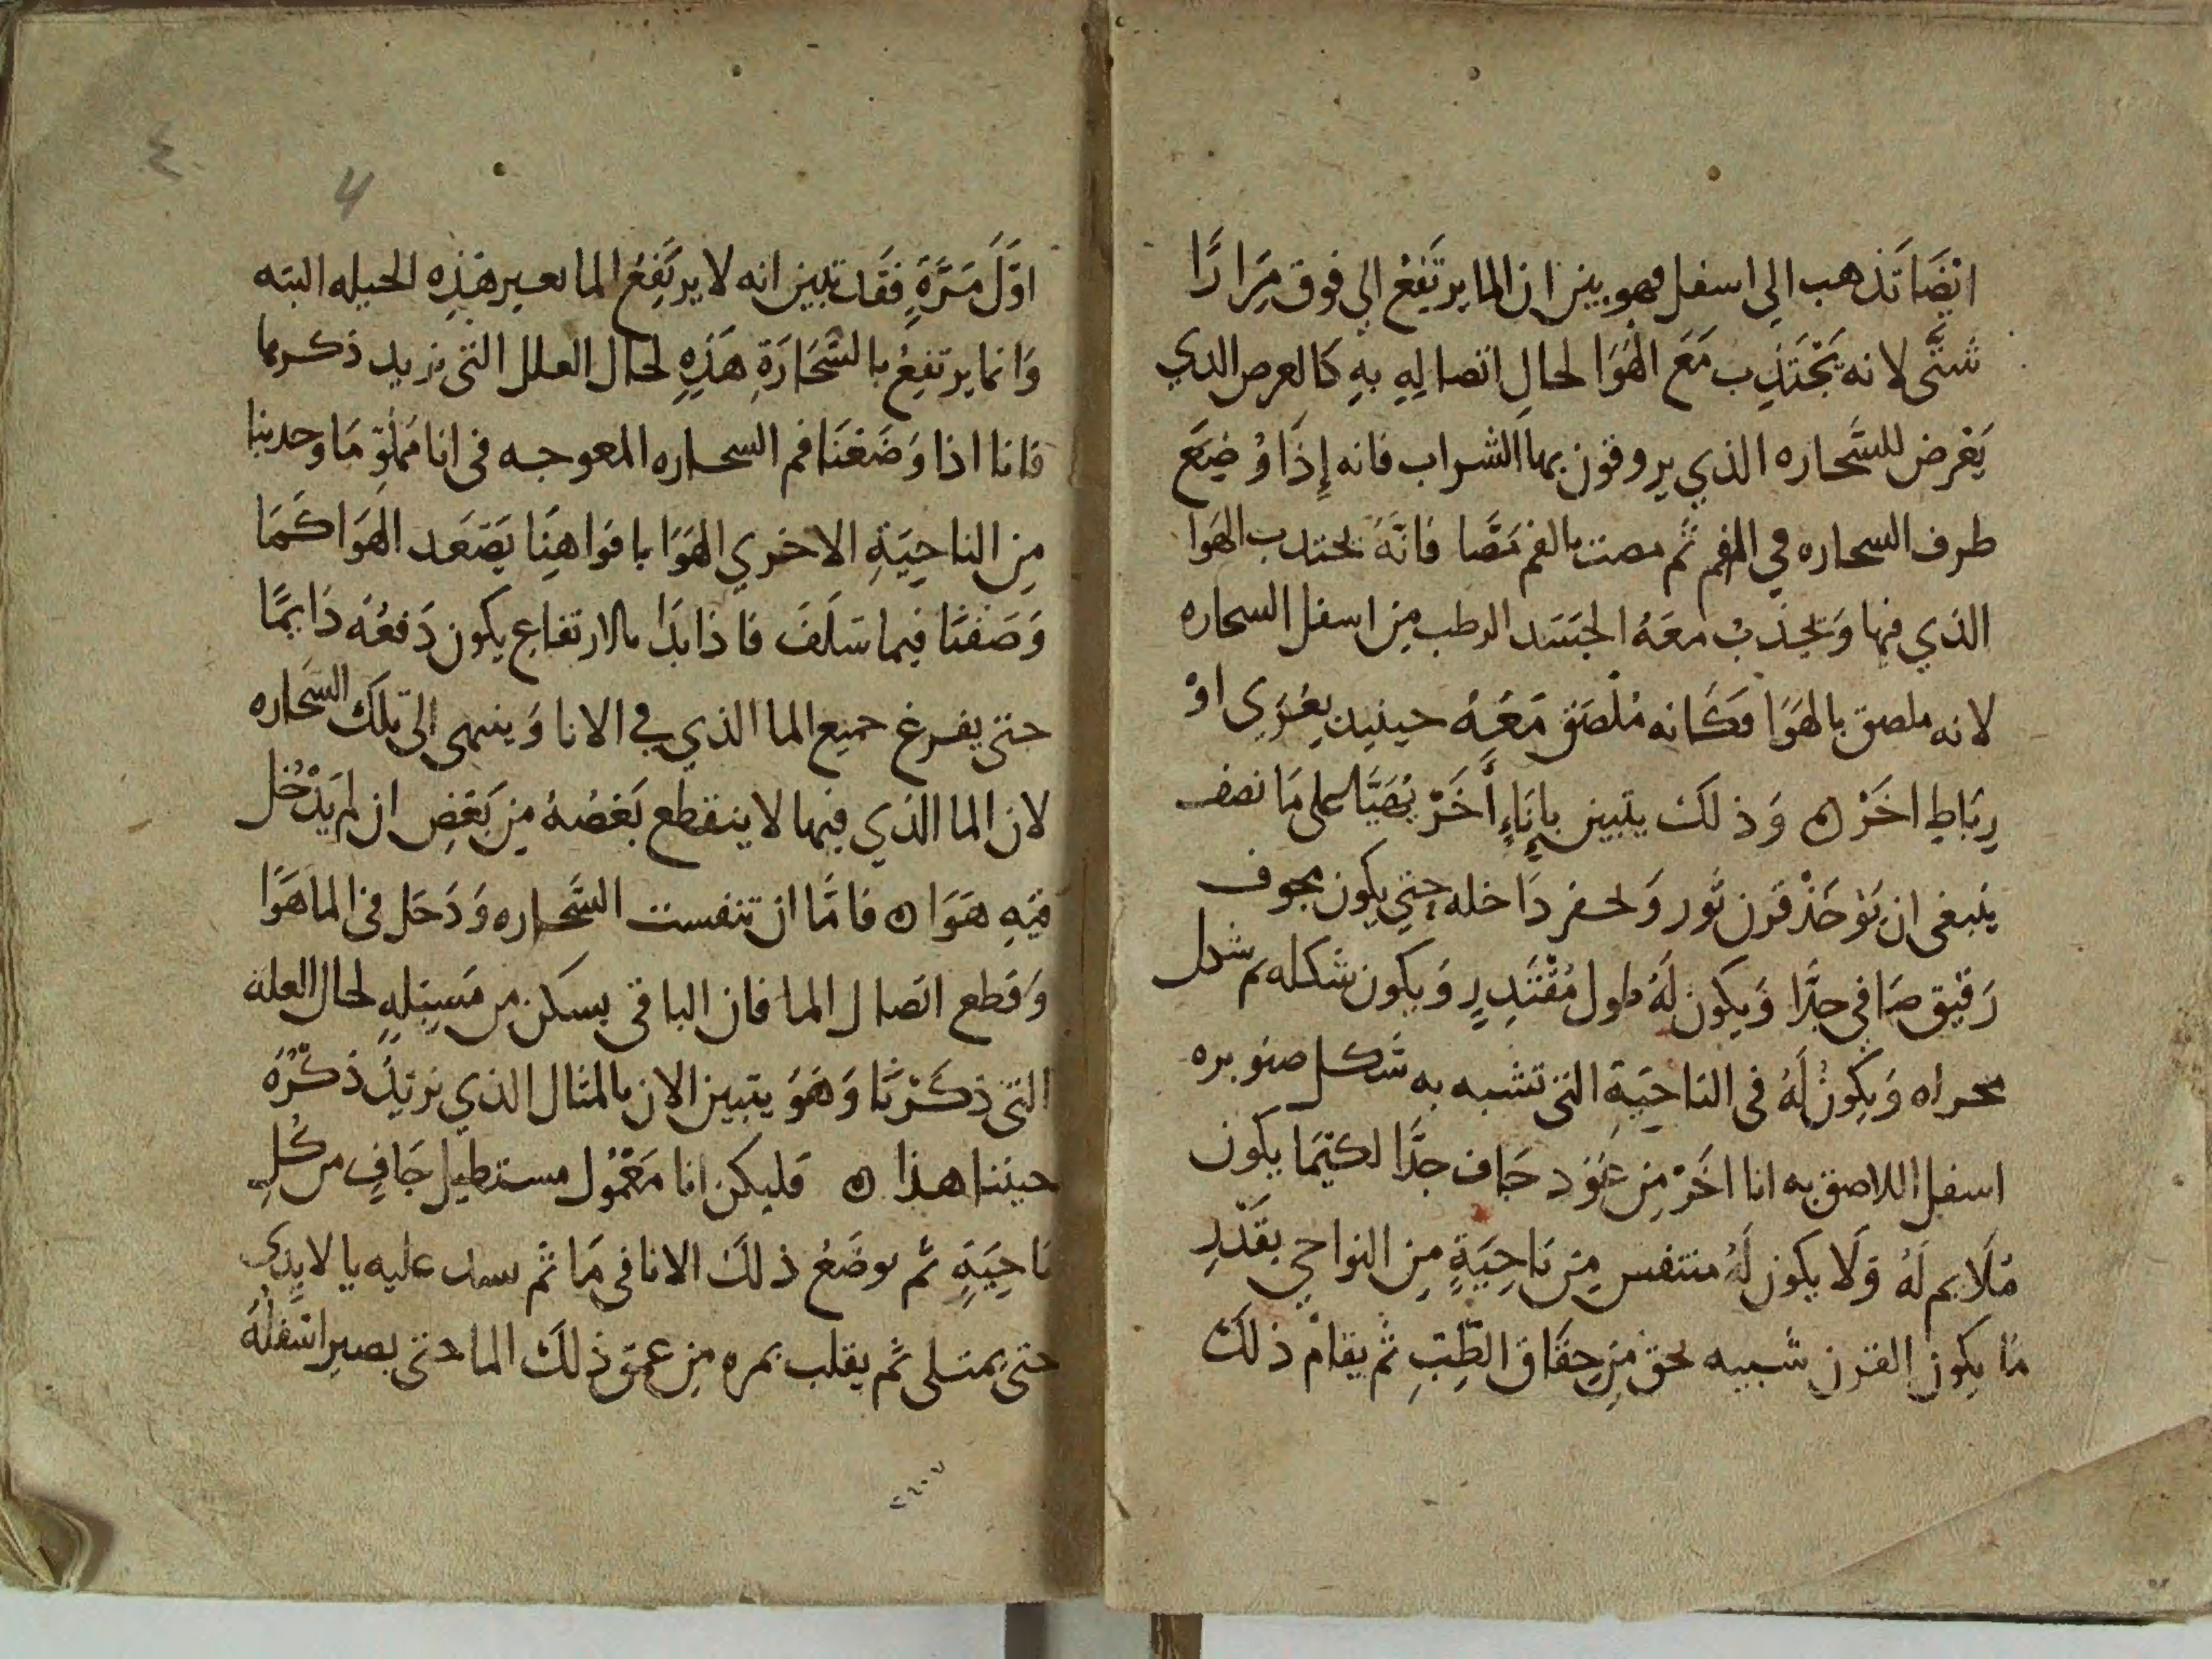 ايضَا تَذهب الي اسفل فهو بين ان الما يرتَفِعُ الي فوق مِرَارًا
شتَّى لانه يَجْتَذِب مَعَ الهَوَا لحالِ اتصالِهِ بِهِ كَالعرض الدي
يَعْرض للسَّحاره الذي يروقون بها الشراب فانه إِذَا وُضِعَ
طرف السحاره في الفم ثم مصت بالفم مَصَّا فَانَّهُ يجتدب الهوَا
الذي فيها وَيجْذبُ معَهُ الجَسَد الرطب مِن اسفل السحاره
لانه ملصق بالهوَا فكَانه مُلْصَق مَعَهُ حينيد بِغِرَى اوْ
رِبَاطٍ اخَرْ ه وَذلكَ يتبين بانَاءٍ أَخَرْ يُهَيَّا على مَا نصف
يَنبغي ان يَوْخَذْ قَرن ثَور وَيحفر دَاخله حتى يكون مجوف
رَقيق صَافي جدَّا وَيكون لَهُ طول مُقْتَدِرٍ وَيكون شكله
وَيكونُ لَهُ في النَاحِيَةِ التي تشبه به شكل صنوبره
اسفل اللاصق به انا اخَرْ مِن عُوْد جَاف جدَّا لكَيْمَا يكون
مُلَايم لَهُ وَلَا يكون لَهُ متنفس مِن نَاحِيَةٍ مِن النواحي بقَدْرِ
مَا يكون القرن شبيه بحق مِن حِقَاق الطِّبِّ ثم يقام ذلكَ
4
٤
اوّلَ مَرَّةٍ فَقَد تبين انه لا يرتَفِعُ الما بعير هَذِهِ الحيله البته
وَانما يرتفِعُ بالسَّحَارَةِ هَذِهِ لحال العلل التي نريد ذكرها
فانا اذا وَضَعْنَا فم السحاره المعوجه في انا مَملو مَا وجدبنا
مِن الناحِيَةِ الاخري الهَوَا بافوَاهِنَا يَصَعَد الهَوَا كَمَا
وَصَفنَا فيما سَلَفَ فاذا بَدَا بالارتفاع يكون دَفعُهُ دَايمًا
حتى يفرغ جميع الما الذي في الانا وَينتهى الى تلكَ السَحاره
لان الما الذي فيها لا ينقطع بَعْضهُ مِن بَعْضٍ ان لم يَدْخُل
فيهِ هَوَا ه فامَّا ان تنفست السَّحاره وَدَخل في الما هَوَا
وَقطع اتصال الما فان الباقي يسكن من مَسيلِهِ لحال العلة
التي ذكَرْنَا وَهوَ يتبين الان بالمثال الذي نريدُ ذكْرَهُ
حيننا هذا ه فليكن انا مَعْمُول مستطيل جَافٍ من كُلِ
نَاحِيَةٍ ثم يوضَعُ ذلكَ الانا في مَا ثم يسد عليه بالايدِي
حتى يمتلى ثم يقلب بمره مِن عمق ذلكَ الما حتى يصير اسْفلُهُ